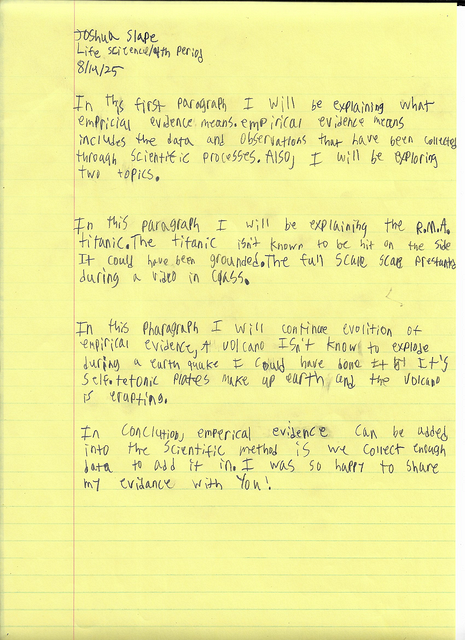 Joshua Slape
Life scitence/4th period
8/14/25
In this first paragraph I will be explaining what
empricial evidence means. empirical evidence means
includes the data and observations that have been collected
through scientific processes. Also, I will be exploring
two topics.
In this paragraph I will be explaining the R.M.A.
titanic. The titanic isn't known to be hit on the side
It could have been grounded. The full scale scan prestants
during a video in class.
In this Pharagraph I will continue evolition of
enpirical evidence, A volcano Isn't know to explode
during a earth quake I could have done It by It's
self. tetonic plates make up earth and the volcano
is erupting.
In conclution, emperical evidence can be added
into the scientific method is we collect enough
data to add it in. I was so happy to share
my evidance with You!